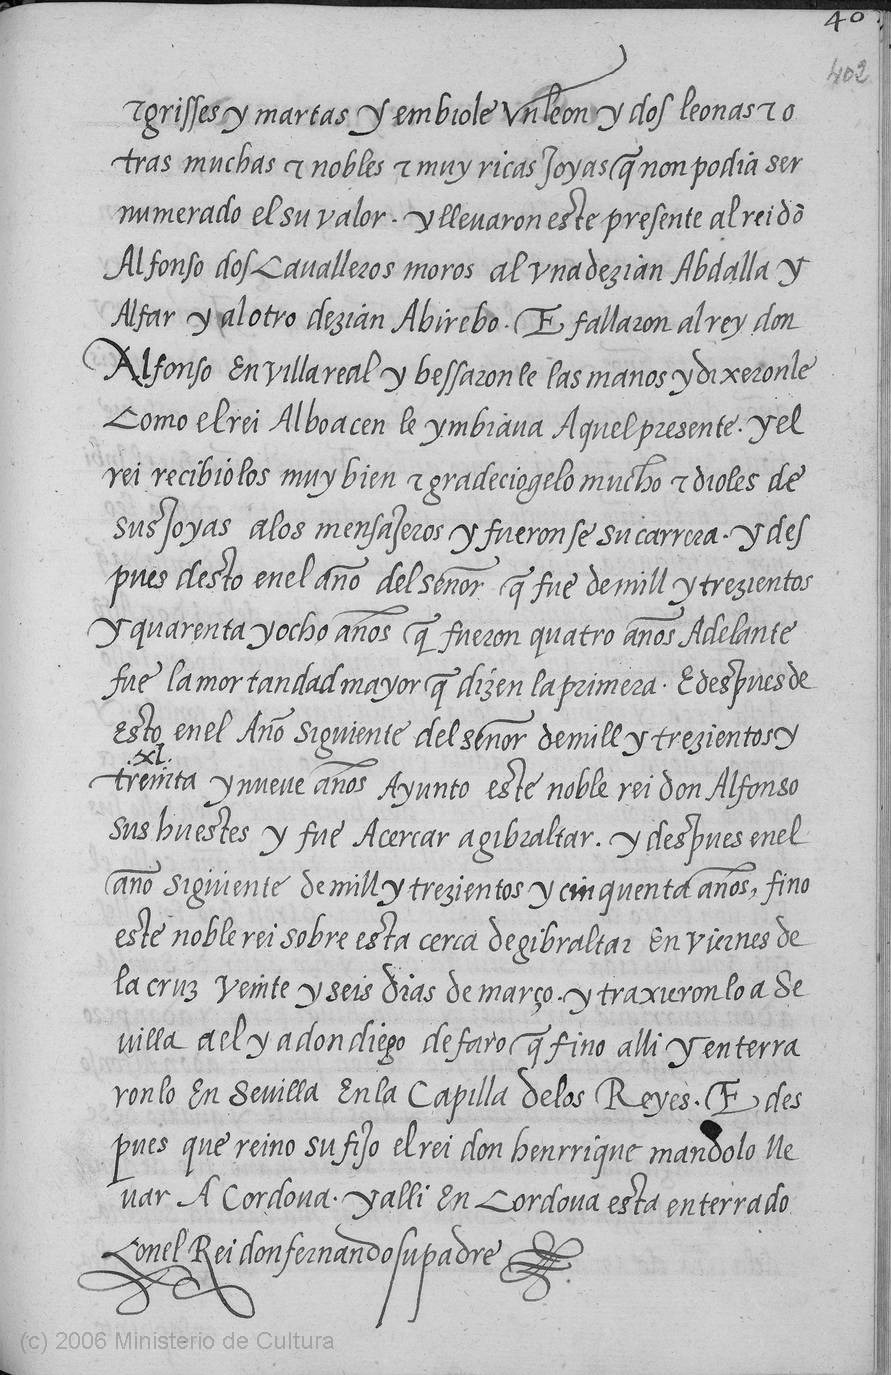 40
402
⁊ grisses y martas y embiole vn leon y dos leonas ⁊ o
tras muchas ⁊ nobles ⁊ muy ricas Joyas q̃ non podia ser
numerado el su valor. y lleuaron este presente al rei dõ
Alfonso dos Caualleros moros al vna dezian Abdalla y
Alfar y al otro dezian Abirebo. E fallaron al rey don
Alfonso En villa real y bessaron le las manos y dixeronle
Como el rei Alboacen le ymbiaua Aquel presente. y el
rei recibiolos muy bien ⁊ gradeciogelo mucho ⁊ dioles de
sus Joyas a los mensaJeros y fueron se su carrera. y des
pues desto en el año del señor q̃ fue de mill y trezientos
y quarenta y ocho años q̃ fueron quatro años Adelante
fue la mortandad mayor q̃ dizen la primera. E despues de
Esto en el Año siguiente del señor de mill y trezientos y
.xl.
treinta y nueue años Ayunto este noble rei don Alfonso
sus huestes y fue Acercar a gibraltar. y despues en el
año siguiente de mill y trezientos y cinquenta años, fino
este noble rei sobre esta cerca de gibraltar En viernes de
la cruz veinte y seis dias de março. y traxieron lo a Se
uilla a el y a don diego de faro q̃ fino alli y enterra
ronlo En Seuilla En la Capilla de los Reyes. E des
pues que reino su fiJo el rei don henrrique mandolo lle
uar A Cordoua. y alli En Cordoua esta enterrado
Con el Rei don fernando su padre
(c) 2006 Ministerio de Cultura